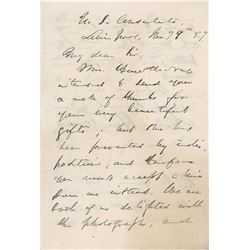 U. S. Consulate,
Liverpool, Jan 29th '57
My dear Sir
Mrs.
intended to send you
a note of thanks for
your very beautiful
gifts; but she has
been prevented by indis-
position; and therefore
you must accept a line
from me instead. We are
both of us delighted with
the photographs; and